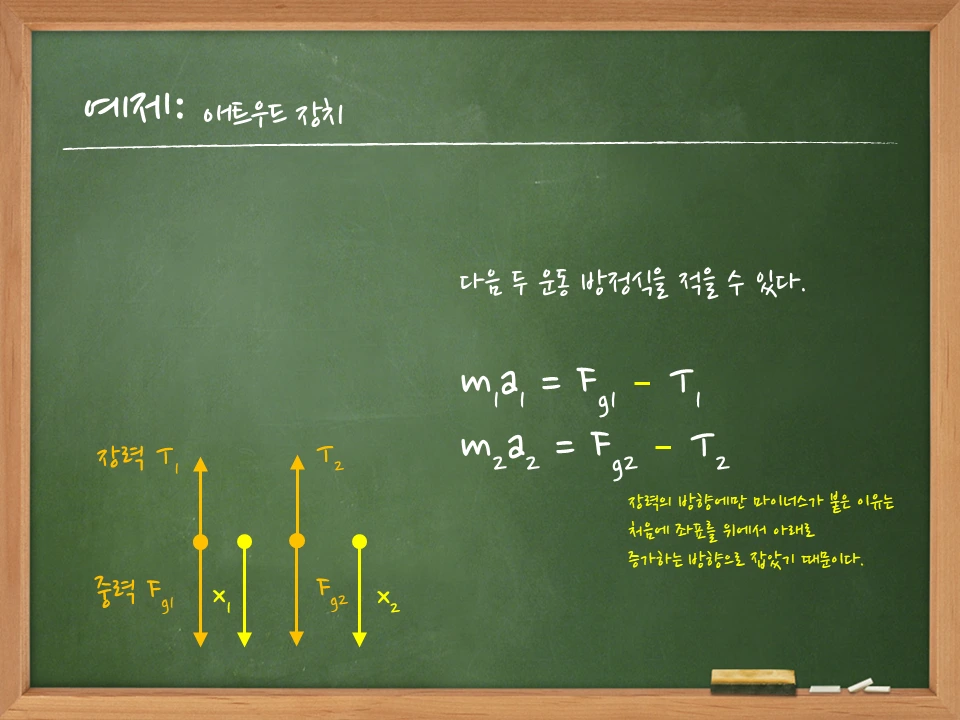 예제: 애트우드 장치
다음 두 운동 방정식을 적을 수 있다.
m₁a₁ = F_g1 - T₁
m₂a₂ = F_g2 - T₂
장력의 방향에만 마이너스가 붙은 이유는
처음에 좌표를 위에서 아래로
증가하는 방향으로 잡았기 때문이다.
장력 T₁
T₂
중력 F_g1
x₁
F_g2
x₂